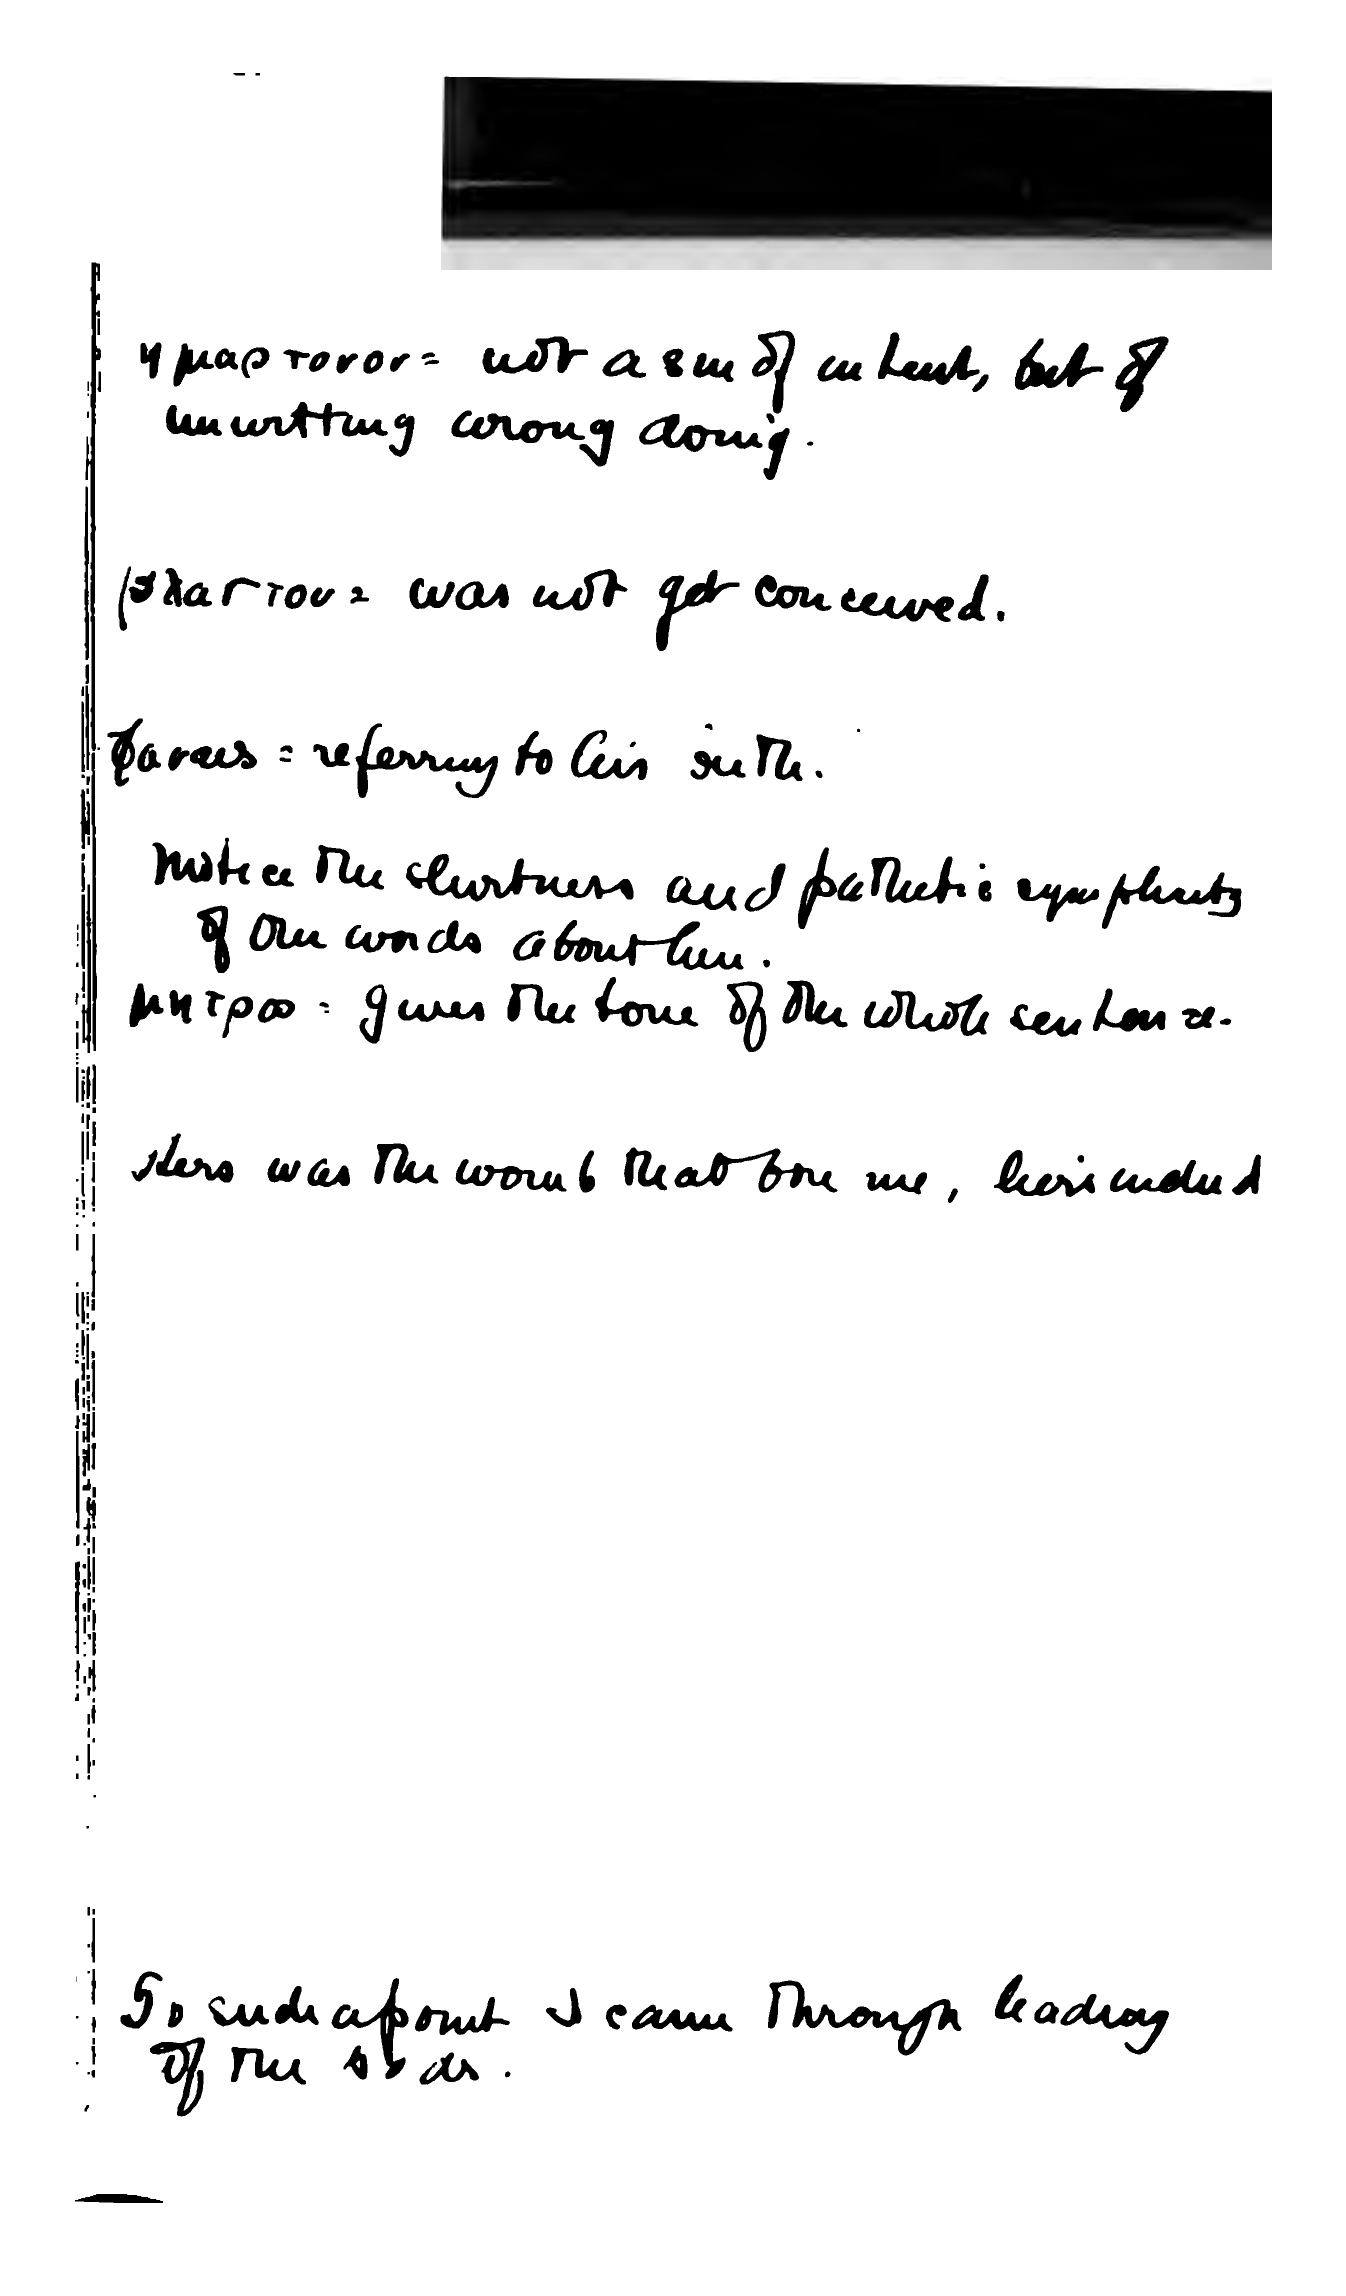 ημαρτονον = not a sin of intent, but of
unwitting wrong doing.
βλαστου = was not yet conceived.
φανεις = referring to his
Notice the shortness and pathetic symplicity
of the words about her.
μητρος = gives the tone of the whole sentence.
Hers was the womb that bore me, hers indeed
To such a point I came through leading
of the Gods.